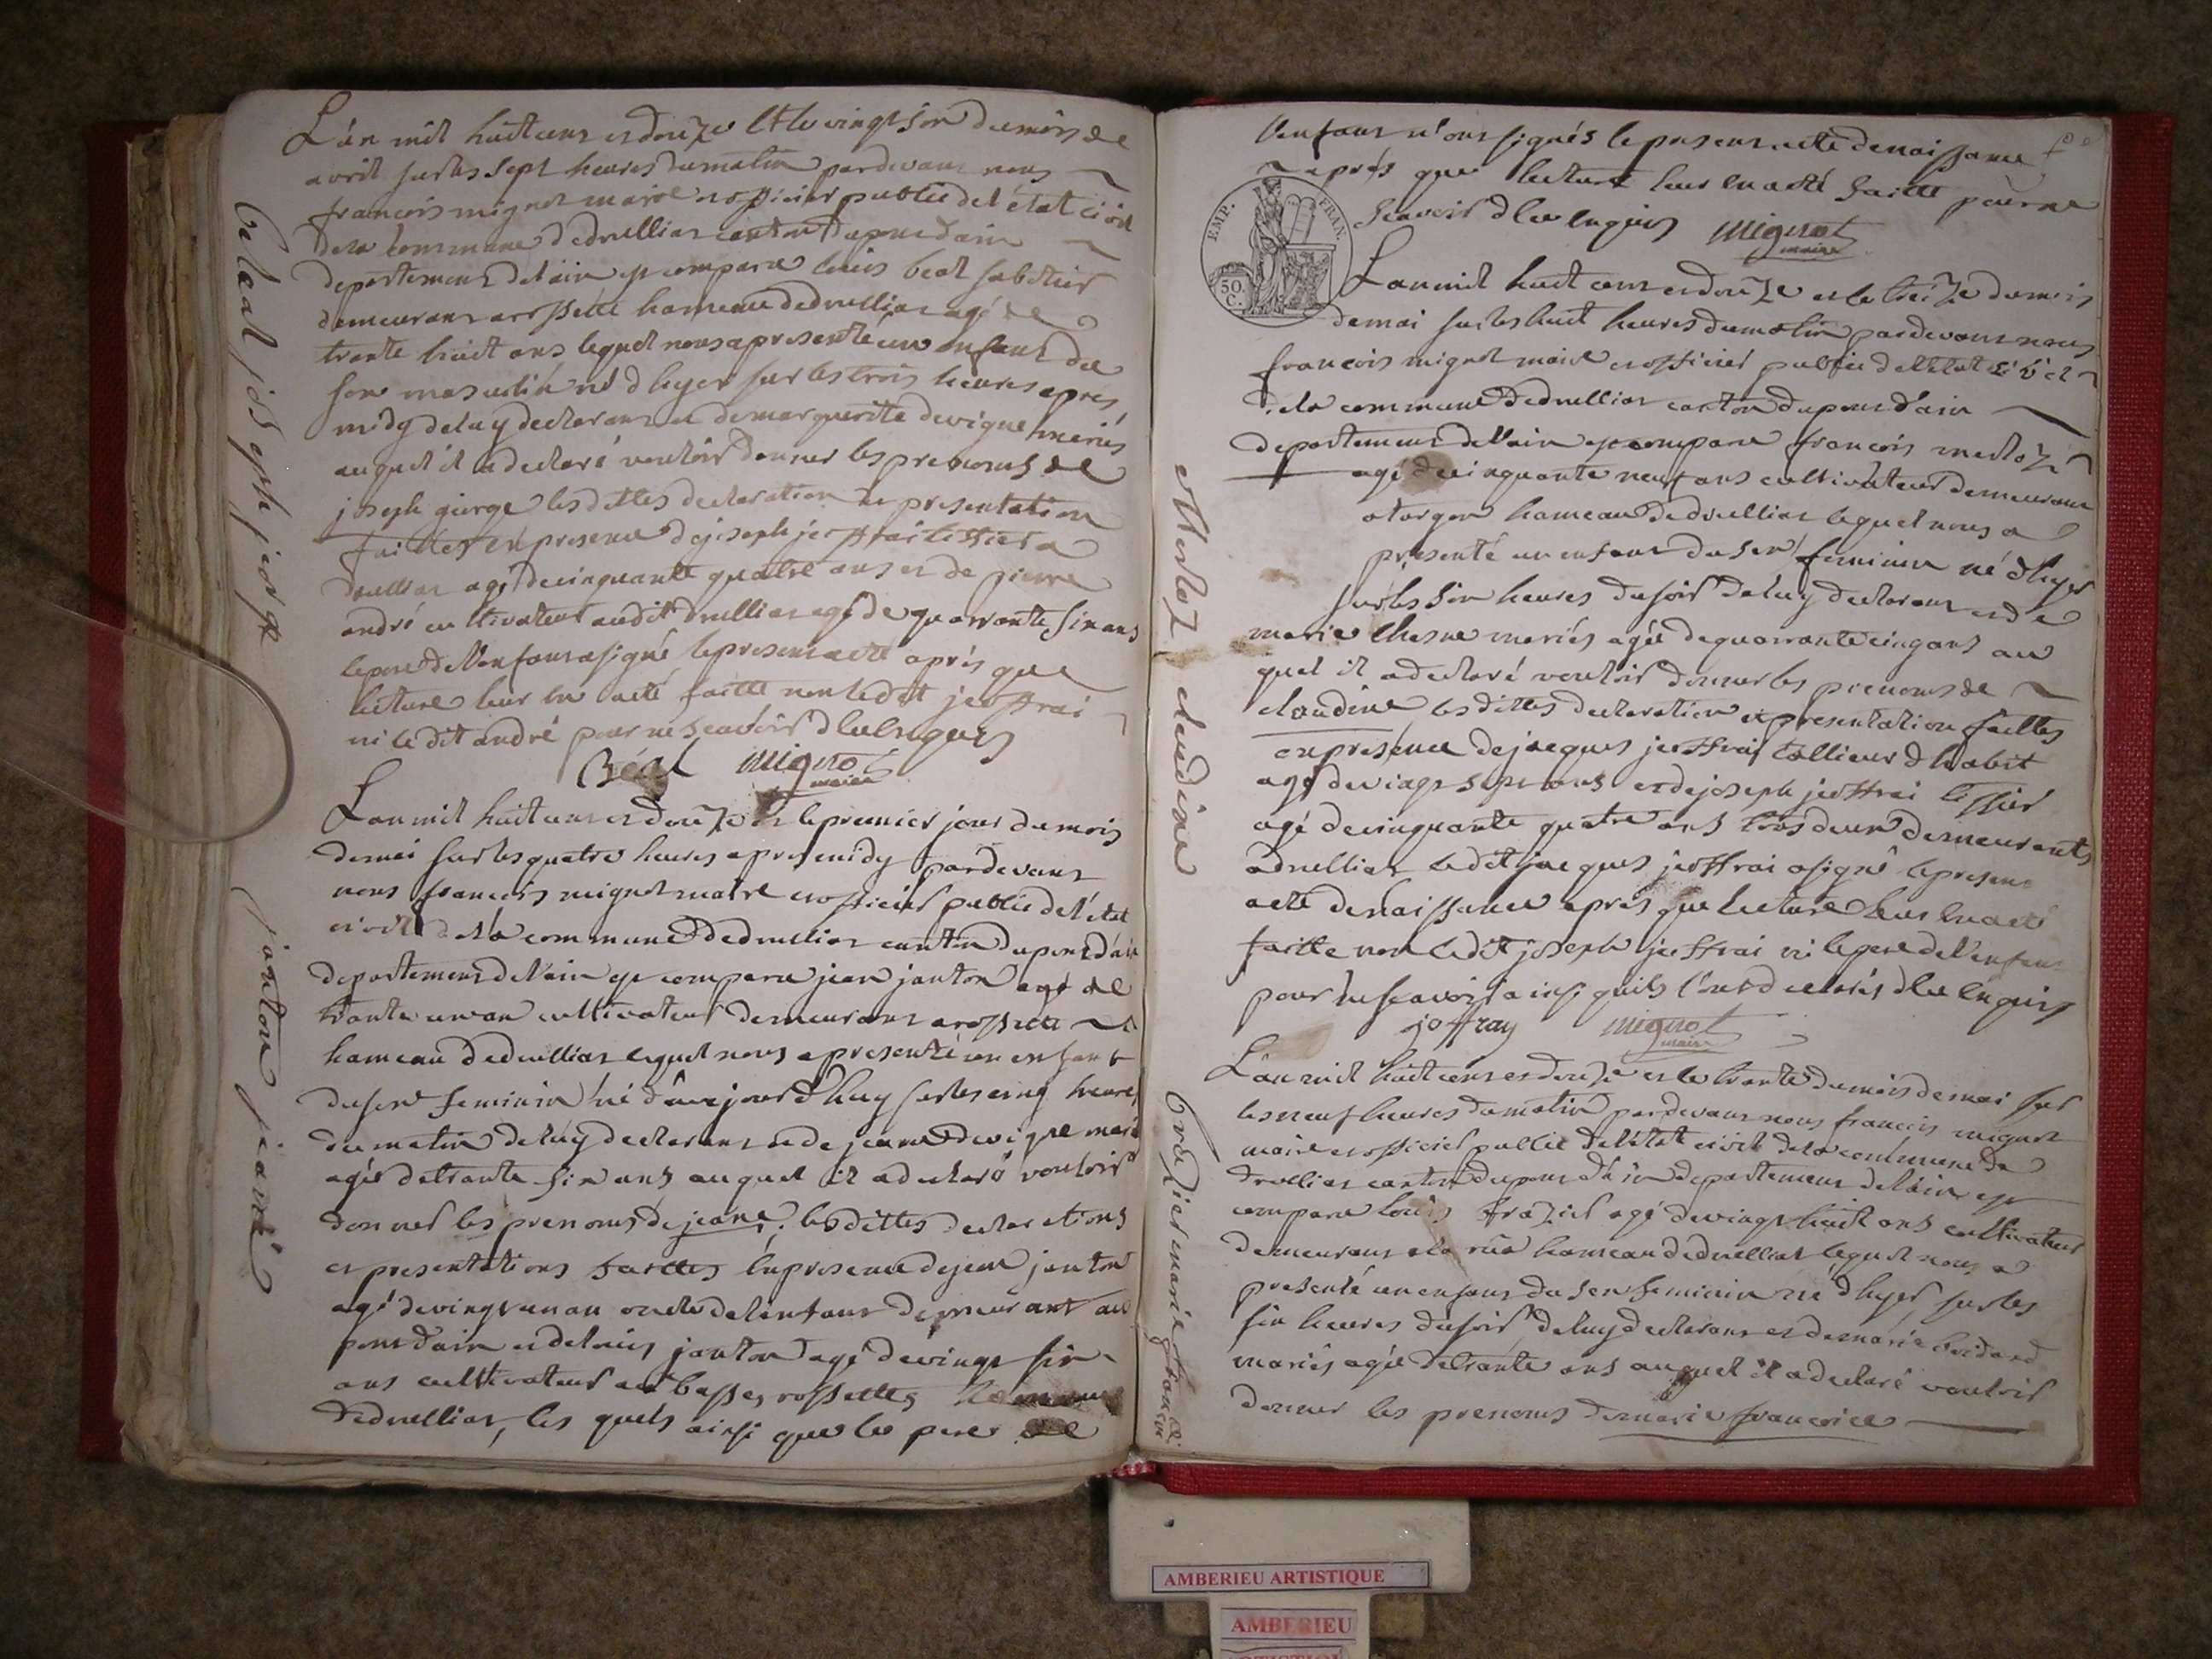 L'an mil huit cens et douze et le vingt six du mois de
avril sur les sept heures du matin pardevant nous
francois mignot maire et officier public de l'état civil
de la commune de druillias canton du pont d'ain
departement de l'ain est comparu louis beal sabotier
demeurant a rossette hameau de druillias agé de
trante huit ans lequel nous a presenté un enfant du
sexe masculin né d'hyer sur les trois heures apres
midy de luy declarant et de marguerite devigne mariés
auquel il a declaré vouloir donner les prenoms de
joseph giorge les dittes declaration et presentation
faittes en presence de joseph jeoffrai tissier a
druillias agé de cinquante quatre ans et de pierre
andré cultivateur audit druillias agé de quarrante six ans
le pere de l'enfant a signé le present acte après que
lecture leur en a eté faitte non ledit jeoffrai
ni le dit andré pour ne scavoir d'ce enquis
Béal mignot
maire
L'an mil huit cens et douze et le premier jour du mois
de mai sur les quatre heures apres midy pardevant
nous francois mignot maire et officier public de l'état
civil de la commune de druillias canton du pont d'ain
departement de l'ain est comparu jean janton agé de
trante un an cultivateur demeurant a rossette
hameau de druillias lequel nous a presenté un enfant
du sexe feminin né d'aujourd'huy sur les cinq heures
du matin de luy declarant et de jeanne devigne mariés
agée de trante six ans auquel il a declaré vouloir
donner les prenoms de jeane les dittes declarations
et presentations faittes en presence de jean janton
agé de vingt un an oncle de l'enfant demeurant au
pont d'ain et de louis janton agé de vingt six
ans cultivateur au basses rossettes hameau
de druillias, les quels ainsi que le pere de
Beal joseph jeorge
janton jeane
l'enfant n'ont signés le present acte de naissance
après que lecture leur en a eté faitte pour ne
scavoir d'ce enquis mignot
maire
EMP. FRAN.
50.
C.
L'an mil huit cens et douze et le treize du mois
de mai sur les huit heures du matin pardevant nous
francois mignot maire et officier public de l'état civil
de la commune de druillias canton du pont d'ain
departement de l'ain est comparu francois merloz
agé de cinquante neuf ans cultivateur demeurant
a turgon hameau de druillias lequel nous a
presenté un enfant du sexe feminin né d'hyer
sur les six heures du soir de luy declarant et de
marie chesne mariés agée de quarrante cinq ans au
quel il a declaré vouloir donner les prenoms de
claudine les dittes declaration et presentation faittes
en presence de jacques jeoffrai tallieur d'habit
agé de vingt sept ans et de joseph jeoffrai tissier
agé de cinquante quatre ans tous deux demeurants
a druillias ledit jacques jeoffrai a signé le present
acte de naissance après que lecture leur en a eté
faitte non ledit joseph jeoffrai ni le pere de l'enfant
pour ne scavoir ainsi quils l'ont declarés d'ce enquis
joffray mignot
maire
L'an mil huit cens et douze et le trante du mois de mai sur
les neuf heures du matin pardevant nous francois mignot
maire et officier public de l'état civil de la commune de
druillias canton du pont d'ain departement de l'ain est
comparu louis frazier agé de vingt huit ans cultivateur
demeurant a la rua hameau de druillias lequel nous a
presenté un enfant du sexe feminin né d'hyer sur les
six heures du soir de luy declarant et de marie
mariés agée de trante ans auquel il a declaré vouloir
donner les prenoms de marie francoise
Merloz claudine
frazier marie francoise
AMBERIEU ARTISTIQUE
AMBERIEU
ARTISTIQUE